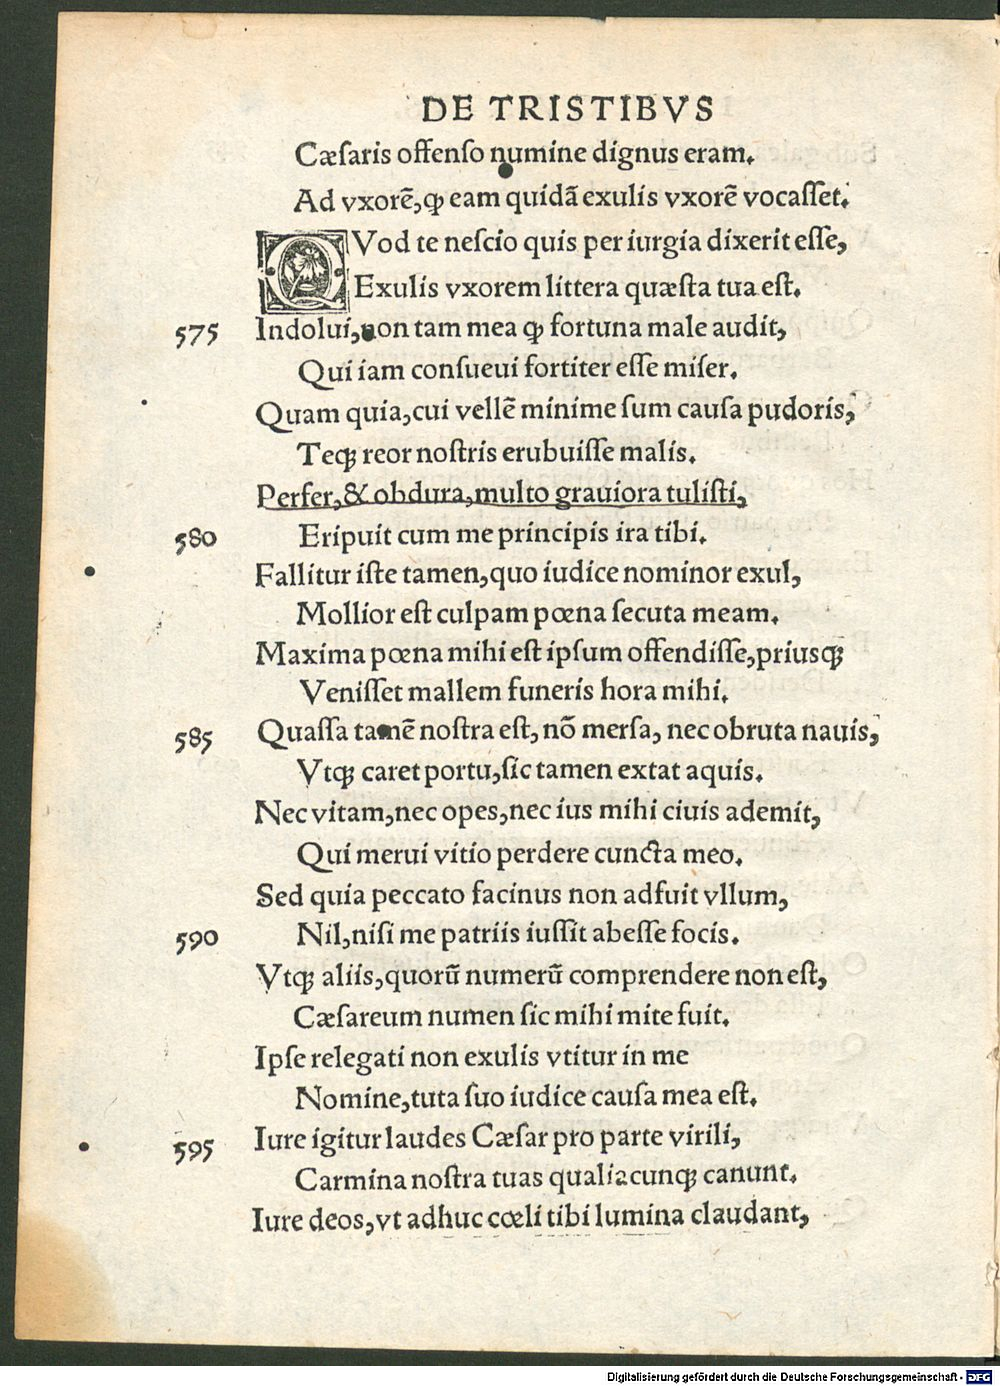 DE TRISTIBVS
Cæſaris offenſo numine dignus eram.
Ad vxorē, ꝙ eam quidā exulis vxorē vocaſſet.
QVod te neſcio quis per iurgia dixerit eſſe,
Exulis vxorem littera quæſta tua eſt.
575 Indolui, non tam mea ꝙ fortuna male audit,
Qui iam conſueui fortiter eſſe miſer.
Quam quia, cui vellē minime ſum cauſa pudoris,
Teqꝫ reor noſtris erubuiſſe malis.
Perfer, & obdura, multo grauiora tuliſti,
580 Eripuit cum me principis ira tibi.
Fallitur iſte tamen, quo iudice nominor exul,
Mollior eſt culpam pœna ſecuta meam.
Maxima pœna mihi eſt ipſum offendiſſe, priusqꝫ
Veniſſet mallem funeris hora mihi.
585 Quaſſa tamē noſtra eſt, nō merſa, nec obruta nauis,
Vtqꝫ caret portu, ſic tamen extat aquis.
Nec vitam, nec opes, nec ius mihi ciuis ademit,
Qui merui vitio perdere cuncta meo.
Sed quia peccato facinus non adfuit vllum,
590 Nil, niſi me patriis iuſſit abeſſe focis.
Vtqꝫ aliis, quorū numerū comprendere non eſt,
Cæſareum numen ſic mihi mite fuit.
Ipſe relegati non exulis vtitur in me
Nomine, tuta ſuo iudice cauſa mea eſt.
595 Iure igitur laudes Cæſar pro parte virili,
Carmina noſtra tuas qualiacunqꝫ canunt.
Iure deos, vt adhuc cœli tibi lumina claudant,
Digitalisierung gefördert durch die Deutsche Forschungsgemeinschaft - DFG